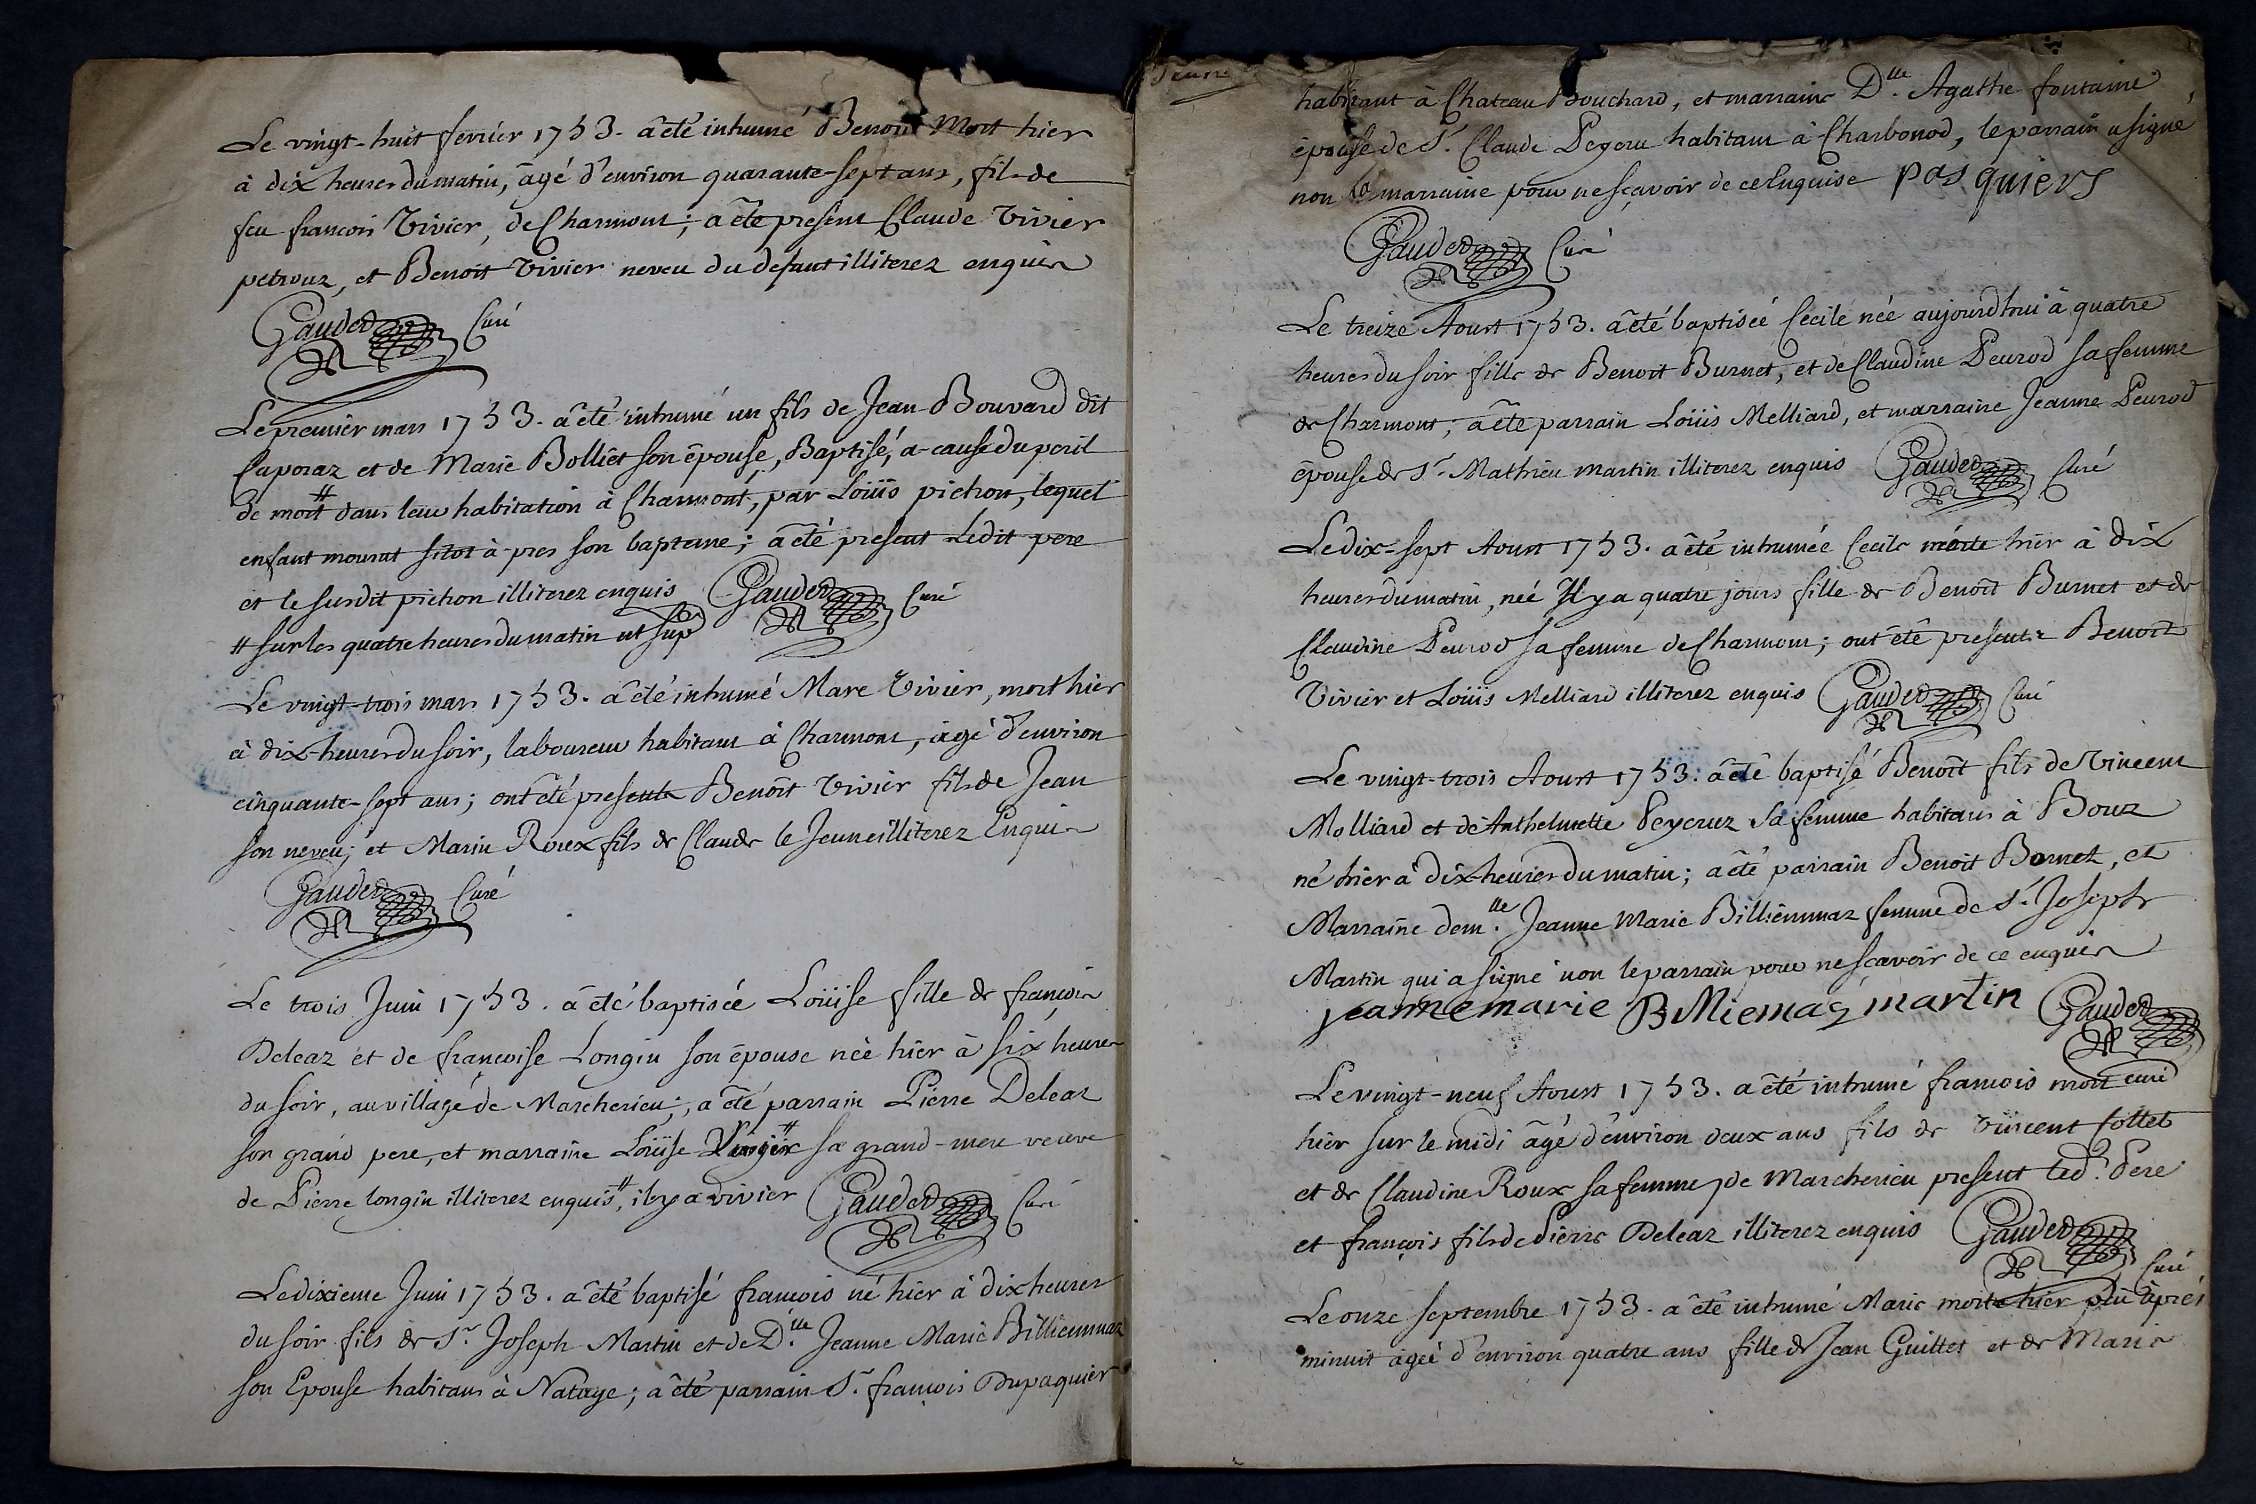 Le vingt-huit fevrier 1753. a été inhumé Benoit Mort hier
à dix heures du matin, âgé d'environ quarante-sept ans, fils de
feu françois Vivier, de Charmont; a été present Claude Vivier
petrouz, et Benoit Vivier neveu du defunt illiterez enquis
Gauded Curé
Le premier mars 1753. a été inhumé un fils de Jean Bouvard dit
Caporaz et de Marie Bolliet son épouse, Baptisé, a-cause du peril
de mort # dans leur habitation à Charmont, par Loüis pichon, lequel
enfant mourut sitot à-pres son bapteme; a été present Ledit pere
et le susdit pichon illiterez enquis Gauded Curé
# sur les quatre heures du matin ut sup
Le vingt-trois mars 1753. a été inhumé Marc Vivier, mort hier
à dix-heures du soir, laboureur habitant à Charmont, âgé d'environ
cinquante-sept ans; ont été presents Benoit Vivier fils de Jean
son neveu; et Marin Roux fils de Claude le Jeune illiterez Enquis
Gauded Curé
Le trois Juin 1753. a été baptisée Loüise fille de françois
Deleaz et de françoise Longin son épouse née hier à six heures
du soir, au village de Marcherieu; a été parrain Pierre Deleaz
son grand pere, et marraine Loüise # sa grand-mere veuve
de Pierre longin illiterez enquis #, il y a vivier Gauded Curé
Le dixieme Juin 1753. a été baptisé françois né hier à dix heures
du soir fils de Sr. Joseph Martin et de Dlle. Jeanne Marie Billiemmaz
son Epouse habitans à Natage; a été parrain Sr. françois Dupaquier
habitant à Chateau Bouchard, et marraine Dlle. Agathe fontaine
épouse de Sr. Claude Peyeru habitant à Charbonod, le parrain a signé
non la marraine pour ne sçavoir de ce Enquise pasquiers
Gauded Curé
Le treize Aoust 1753. a été baptisée Cécile née aujourdhui à quatre
heures du soir fille de Benoit Burnet, et de Claudine Peurod sa femme
de Charmont; a été parrain Loüis Melliard, et marraine Jeanne Peurod
épouse de Sr. Mathieu martin illiterez enquis Gauded Curé
Le dix-sept Aoust 1753. a été inhumée Cecile morte hier à dix
heures du matin, née Il y a quatre jours fille de Benoît Burnet et de
Claudine Peurod sa femme de Charmont; ont été presents Benoit
Vivier et Loüis Melliard illiterez enquis Gauded Curé
Le vingt-trois Aoust 1753. a été baptisé Benoît fils de Vincent
Molliard et de Anthelmette Peyeruz sa femme habitans à Bouz
né hier à dix-heures du matin; a été parrain Benoit Bornet, et
Marraine demlle. Jeanne Marie Billiemmaz femme de Sr. Joseph
Martin qui a signé non le parrain pour ne scavoir de ce enquis
jeanne marie Billiemaz martin Gauded
Le vingt-neuf Aoust 1753. a été inhumé françois mort curé
hier sur le midi âgé d'environ deux ans fils de vincent Collet
et de Claudine Roux sa femme, de Marcherieu present Led. Pere
et françois fils de Pierre Deleaz illiterez enquis Gauded
Curé
Le onze septembre 1753. a été inhumé Marie morte hier peu après
minuit âgée d'environ quatre ans fille de Jean Guillet et de Marie